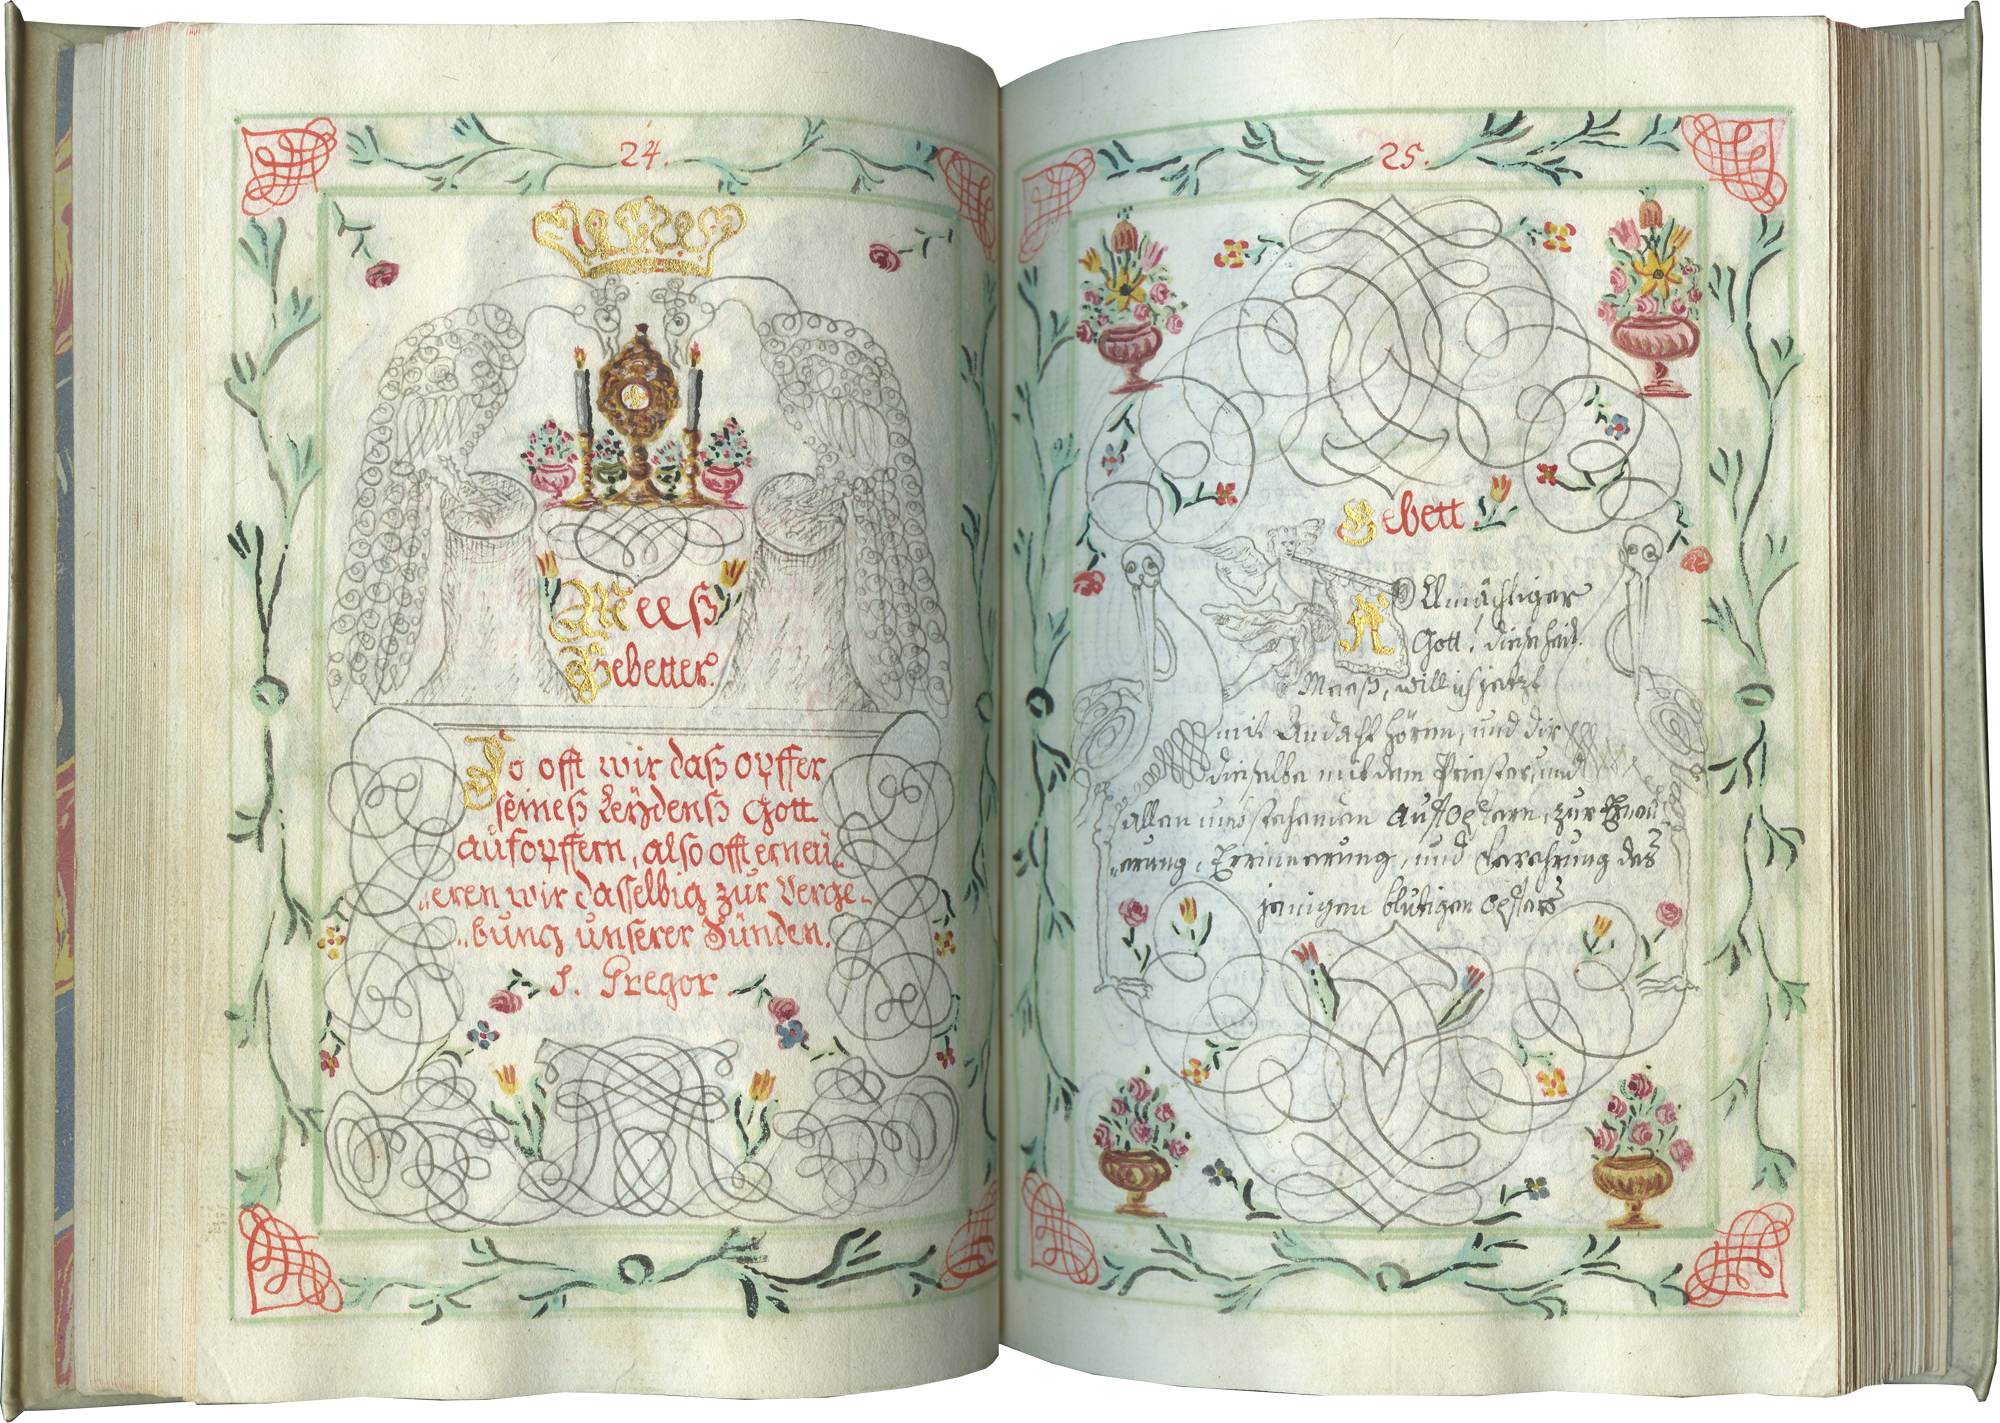 24.
Meeß
Gebetter.
So offt wir daß opffer
seineß Leÿdenß Gott
aufopffern, also offt erneü„
„eren wir dasselbig zur Verge„
„bung unserer Sünden.
S. Gregor.
25.
Gebett.
Allmächtiger
Gott! diese heil.
Meeß, will ich jetzt
mit Andacht hören, und dir
dieselbe mit dem Priester, und
allen umbstehenden auffopfern, zur Erneu„
„erung, Errinnerung, und Verehrung des
jenigen blutigen opffers